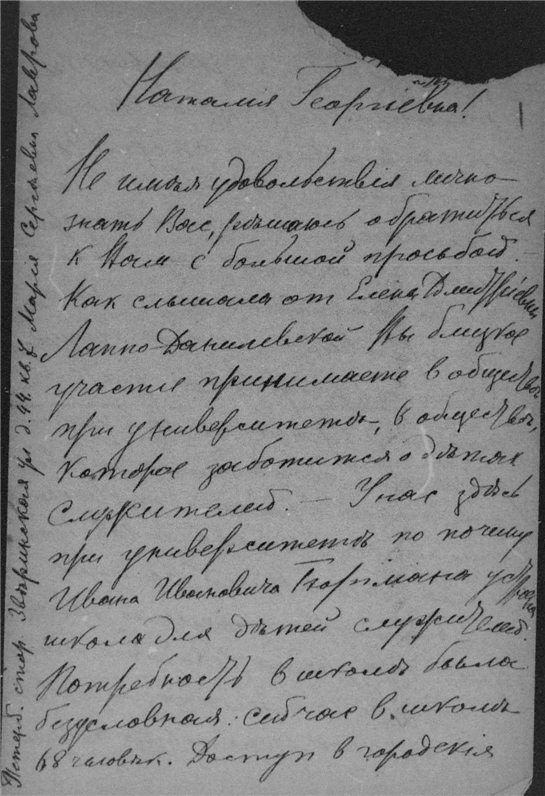 Наталія Георгіевна!
Не имѣя удовольствія лично
знать Васъ, рѣшаюсь обратиться
к Вам с большой просьбой.
Как слышала от Елены Дмитріевны
Лаппо-Данилевской Вы близкое
участіе принимаете в обществѣ
при университетѣ, в обществѣ,
которое заботится о дѣтях
служителей. — У нас здѣсь
при университетѣ по почину
Ивана Ивановича Боргмана устроена
школа для дѣтей служителей.
Потребность в школѣ была
безусловная: сейчас в школѣ
68 человѣк. Доступ в городскія
Петерб. стор. Звѣринская ул д. 44. кв. 7 Марія Сергѣевна Лаврова